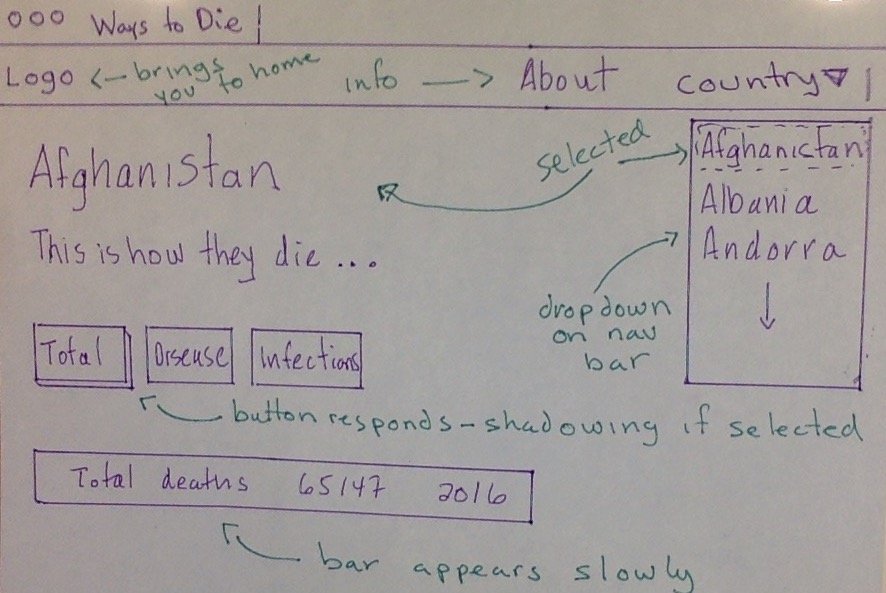 000 Ways to Die
Logo <- brings you to home info -> About Country
Afghanistan
selected
Afghanistan
Albania
Andorra
This is how they die ...
dropdown
on nav
bar
Total Disease Infections
button responds - shadowing if selected
Total deaths 65147 2016
bar appears slowly